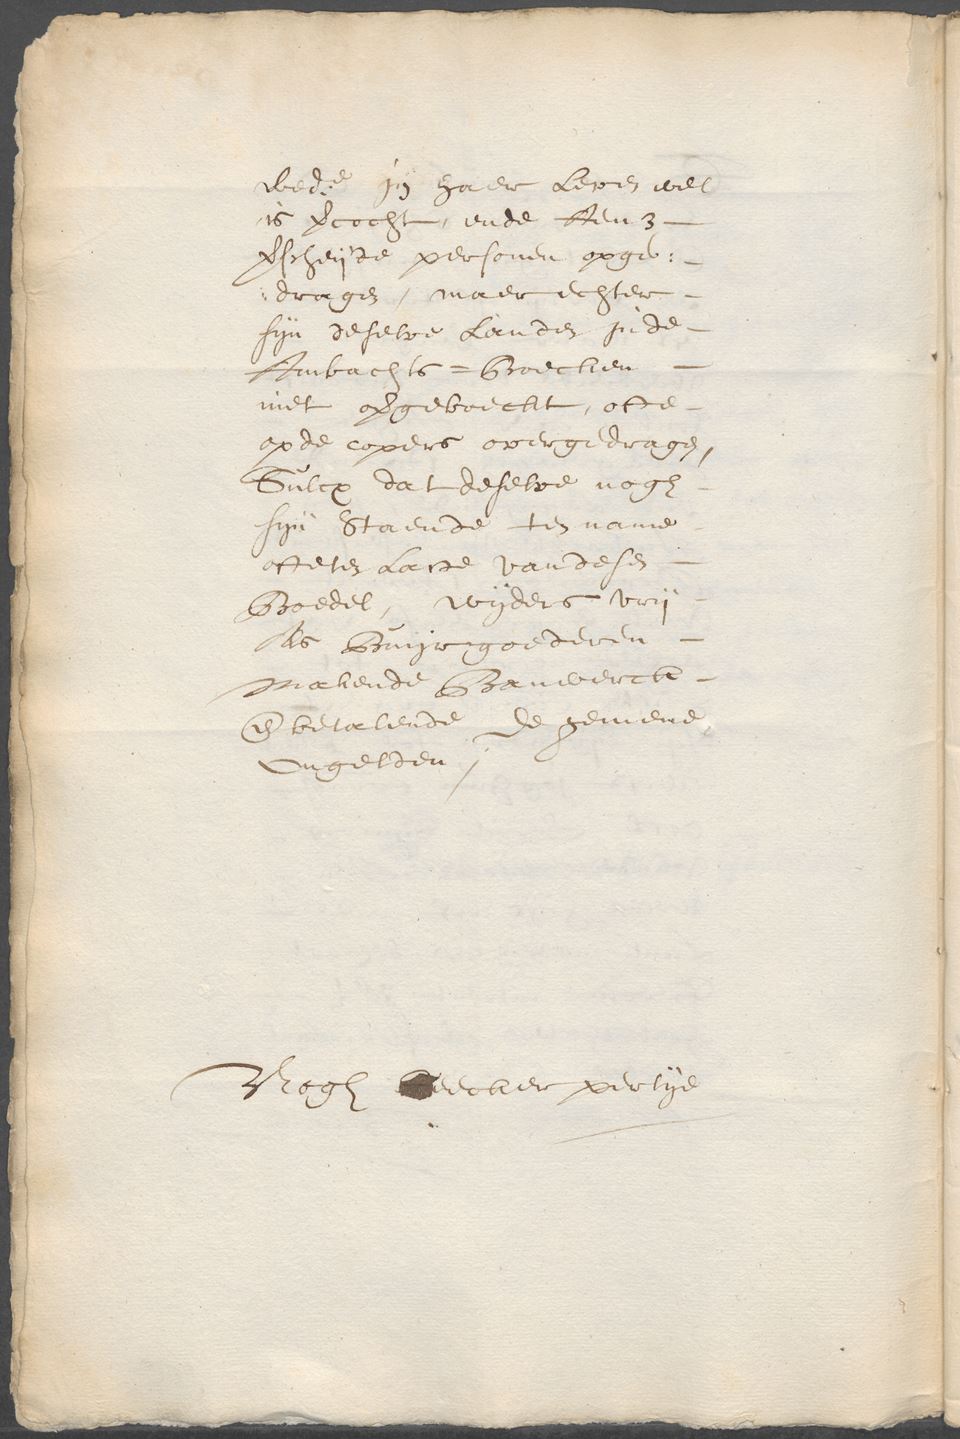 Wed:e in haer Leven wel
is vercocht, ende Aen 3 —
verscheijde personen opge: —
:dragen, maer echter —
sijn deselve Landen in de —
Ambachts = Boecken —
niet afgeboeckt, ofte —
op de copers overgedragen,
Sulcx dat deselve nogh —
sijn Staende ten name —
ofte ten Laste van desen —
Boedel, wijders vrij —
Als Buijrgoederen —
Makende Banwerck —
en betalende de gemene
Ongelden,
Nogh seecker pertije